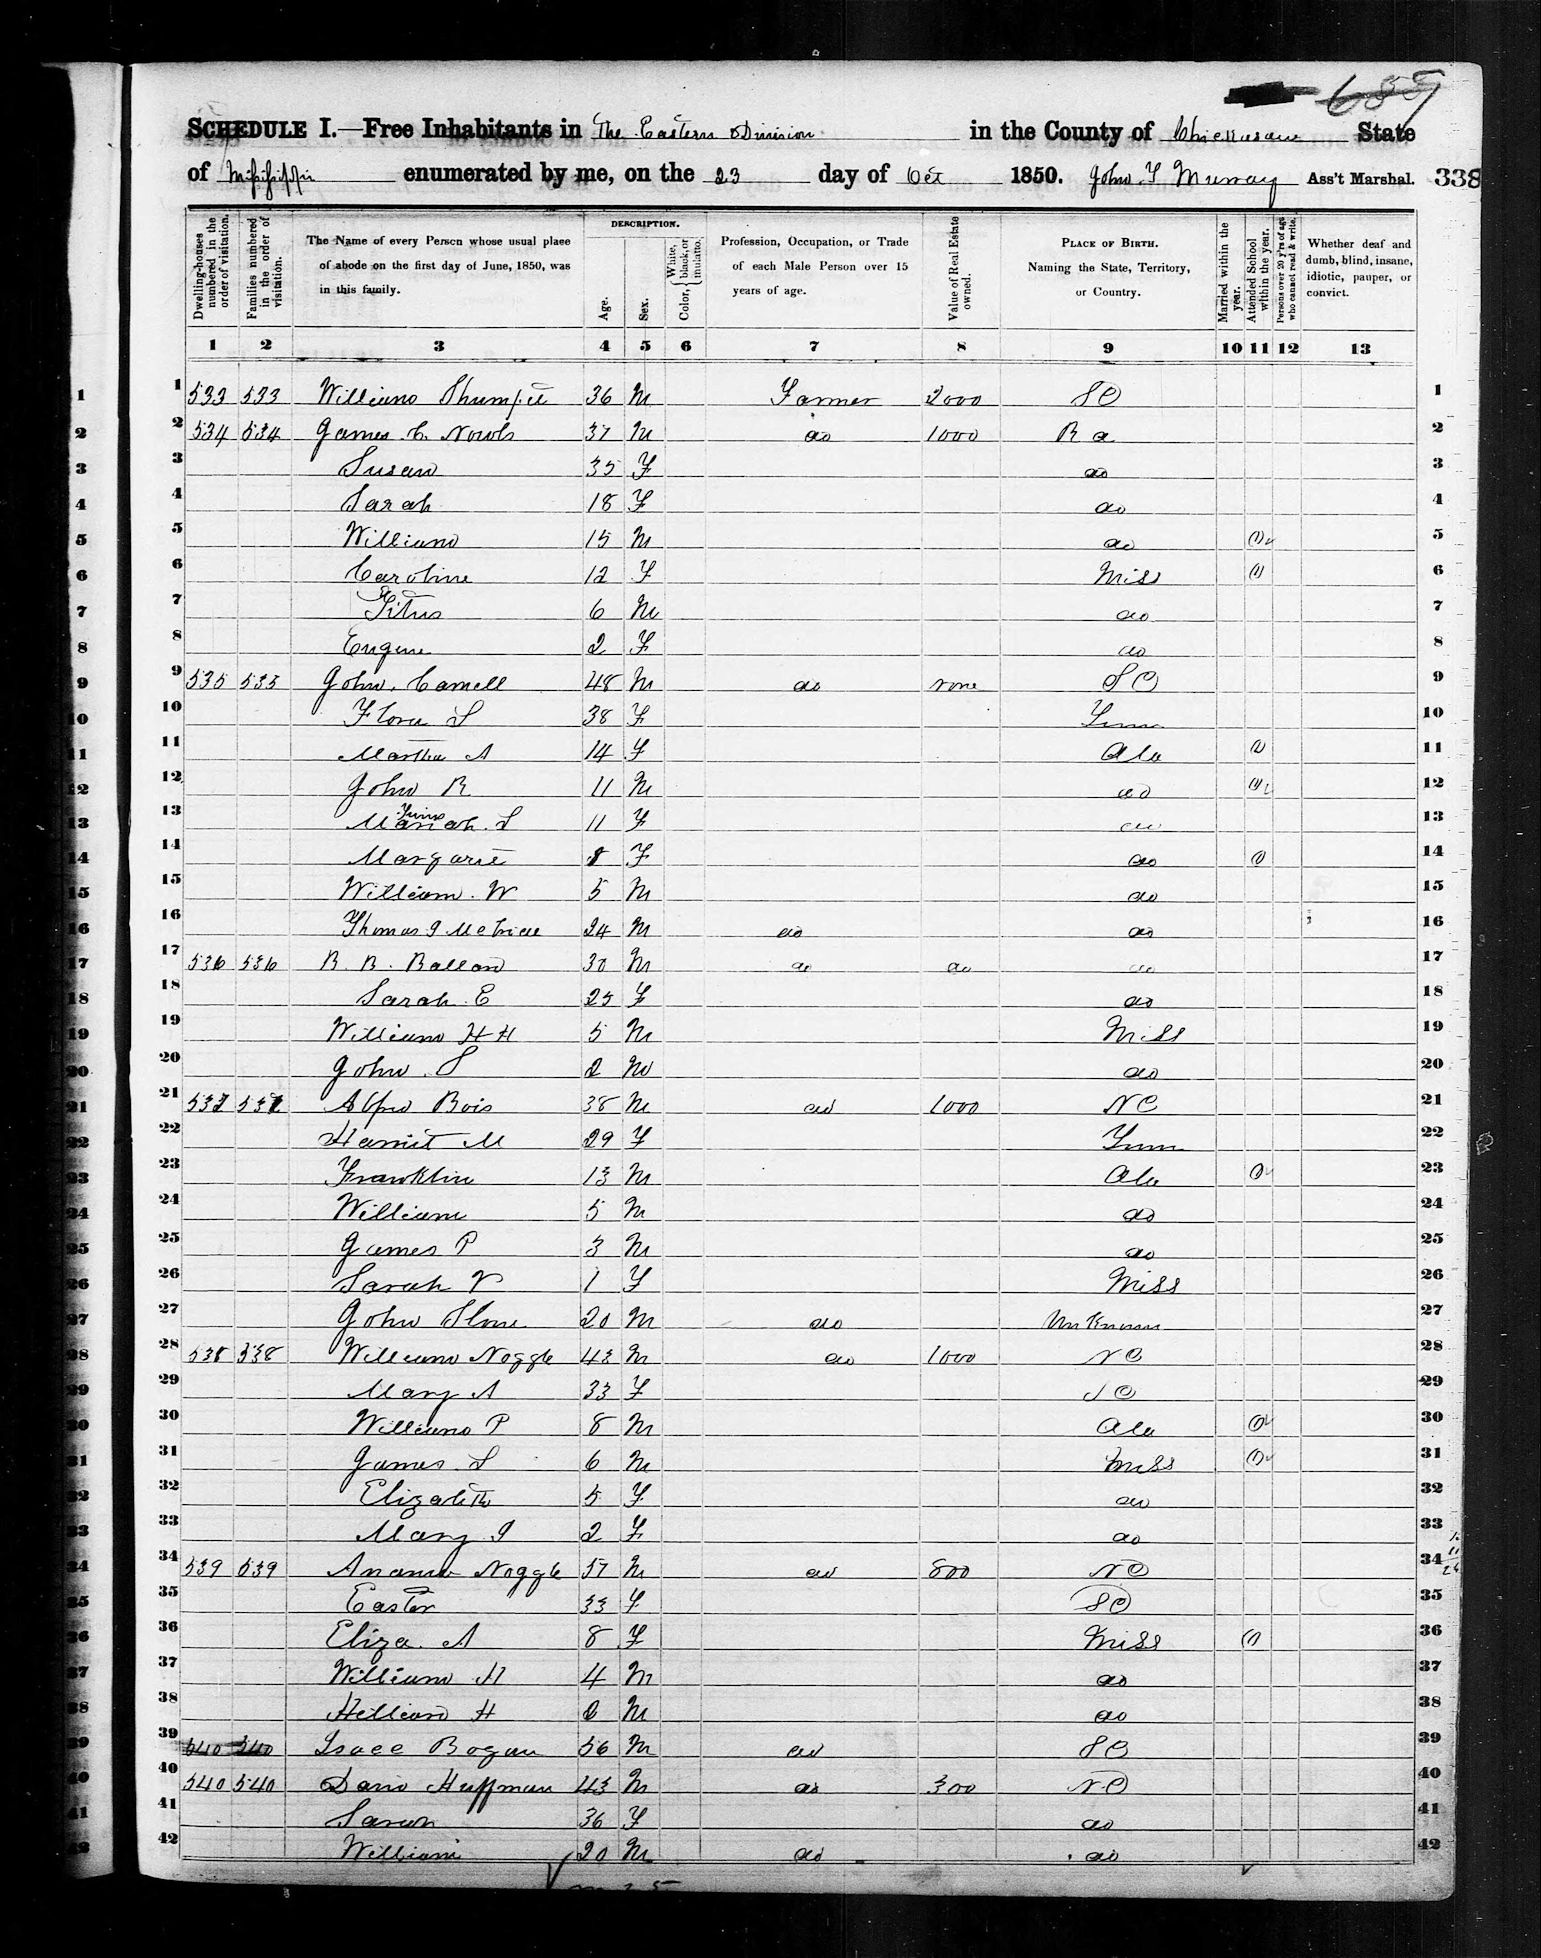 655
SCHEDULE I.—Free Inhabitants in The Eastern Division in the County of Chickasaw State
of Mississippi enumerated by me, on the 23 day of Oct 1850. John T Murray Ass't Marshal. 338
Dwelling-houses numbered in the order of visitation.
Families numbered in the order of visitation.
The Name of every Person whose usual place of abode on the first day of June, 1850, was in this family.
DESCRIPTION.
Age.
Sex.
Color, White, black, or mulatto.
Profession, Occupation, or Trade of each Male Person over 15 years of age.
Value of Real Estate owned.
PLACE OF BIRTH. Naming the State, Territory, or Country.
Married within the year.
Attended School within the year.
Persons over 20 y'rs of age who cannot read & write.
Whether deaf and dumb, blind, insane, idiotic, pauper, or convict.
1 2 3 4 5 6 7 8 9 10 11 12 13
1 533 533 William 36 M Farmer 2000 SC 1
2 534 534 James C. 37 M do 1000 2
3 Susan 35 F do 3
4 Sarah 18 F do 4
5 William 15 M do 1 5
6 Caroline 12 F Miss 1 6
7 Titus 6 M do 7
8 Eugene 2 F do 8
9 535 535 John Camell 48 M do none SC 9
10 Flora S 38 F Tenn 10
11 Martha A 14 F Ala 1 11
12 John R 11 M do 1 12
13 Mariah S 11 F do 13
14 Margaret 8 F do 1 14
15 William W 5 M do 15
16 Thomas J 24 M do do 16
17 536 536 B. B. Ballard 30 M do do do 17
18 Sarah E 25 F do 18
19 William H H 5 M Miss 19
20 John S 2 M do 20
21 537 537 Alfred Bois 38 M do 1000 NC 21
22 Harriet M 29 F Tenn 22
23 Franklin 13 M Ala 1 23
24 William 5 M do 24
25 James P 3 M do 25
26 Sarah V 1 F Miss 26
27 John Slone 20 M do Unknown 27
28 538 538 William Noggle 43 M do 1000 NC 28
29 Mary A 33 F SC 29
30 William P 8 M Ala 1 30
31 James S 6 M Miss 1 31
32 Elizabeth 5 F do 32
33 Mary J 2 F do 33
34 539 539 Noggle 37 M do 800 NC 34
35 Easter 33 F SC 35
36 Eliza A 8 F Miss 1 36
37 William H 4 M do 37
38 Hilliard H M do 38
39 540 540 Isaac Bogan 56 M do SC 39
40 540 540 Huffman 43 M do 300 NC 40
41 Sarah 36 F do 41
42 William 20 M do do 42